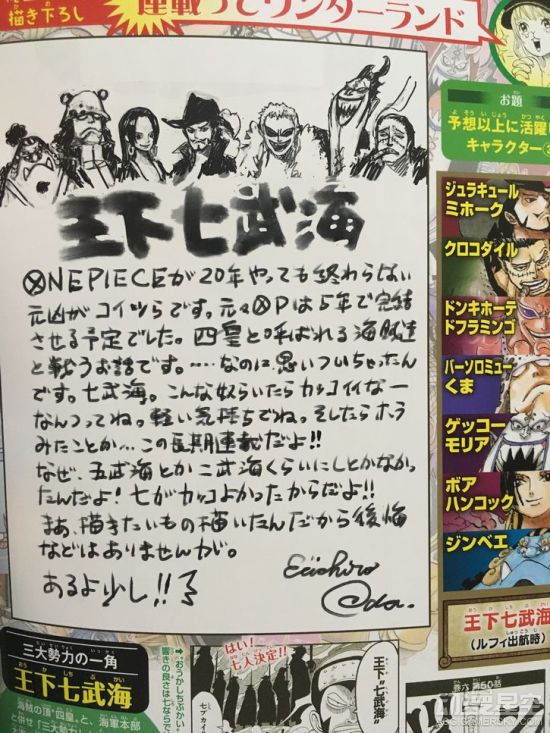 描き下ろし
連載ってワンダーランド
お題
よそういじょう かつやく
予想以上に活躍
キャラクター③
王下七武海
ONE PIECEが20年やっても終わらない
元凶がコイツらです。元々OPは5年で完結
させる予定でした。四皇と呼ばれる海賊達
と戦うお話です。……なのに思いついちゃったん
です。七武海。こんな奴らいたらカッコイイなー
なんつってね。軽い気持ちでね。そしたらホラ
みたことか…この長期連載だよ!!
なぜ、五武海とか二武海くらいにしとかなかっ
たんだよ!七がカッコよかったからだよ!!
まあ、描きたいもの描いたんだから後悔
などはありませんが。
あるよ少し!!
Eiichiro
Oda.
ジュラキュール
ミホーク
クロコダイル
ドンキホーテ
ドフラミンゴ
バーソロミュー
くま
ゲッコー
モリア
ボア
ハンコック
ジンベエ
王下七武海
(ルフィ出航時)
三大勢力の一角
おうかしちぶかい
王下七武海
海賊の頂"四皇"と、海軍本部
と併せ「三大勢力」
➡おうかしちぶかい
響きの良さは七ならで
はい!
七人決定!!
王下"七武海"
巻六 第50話